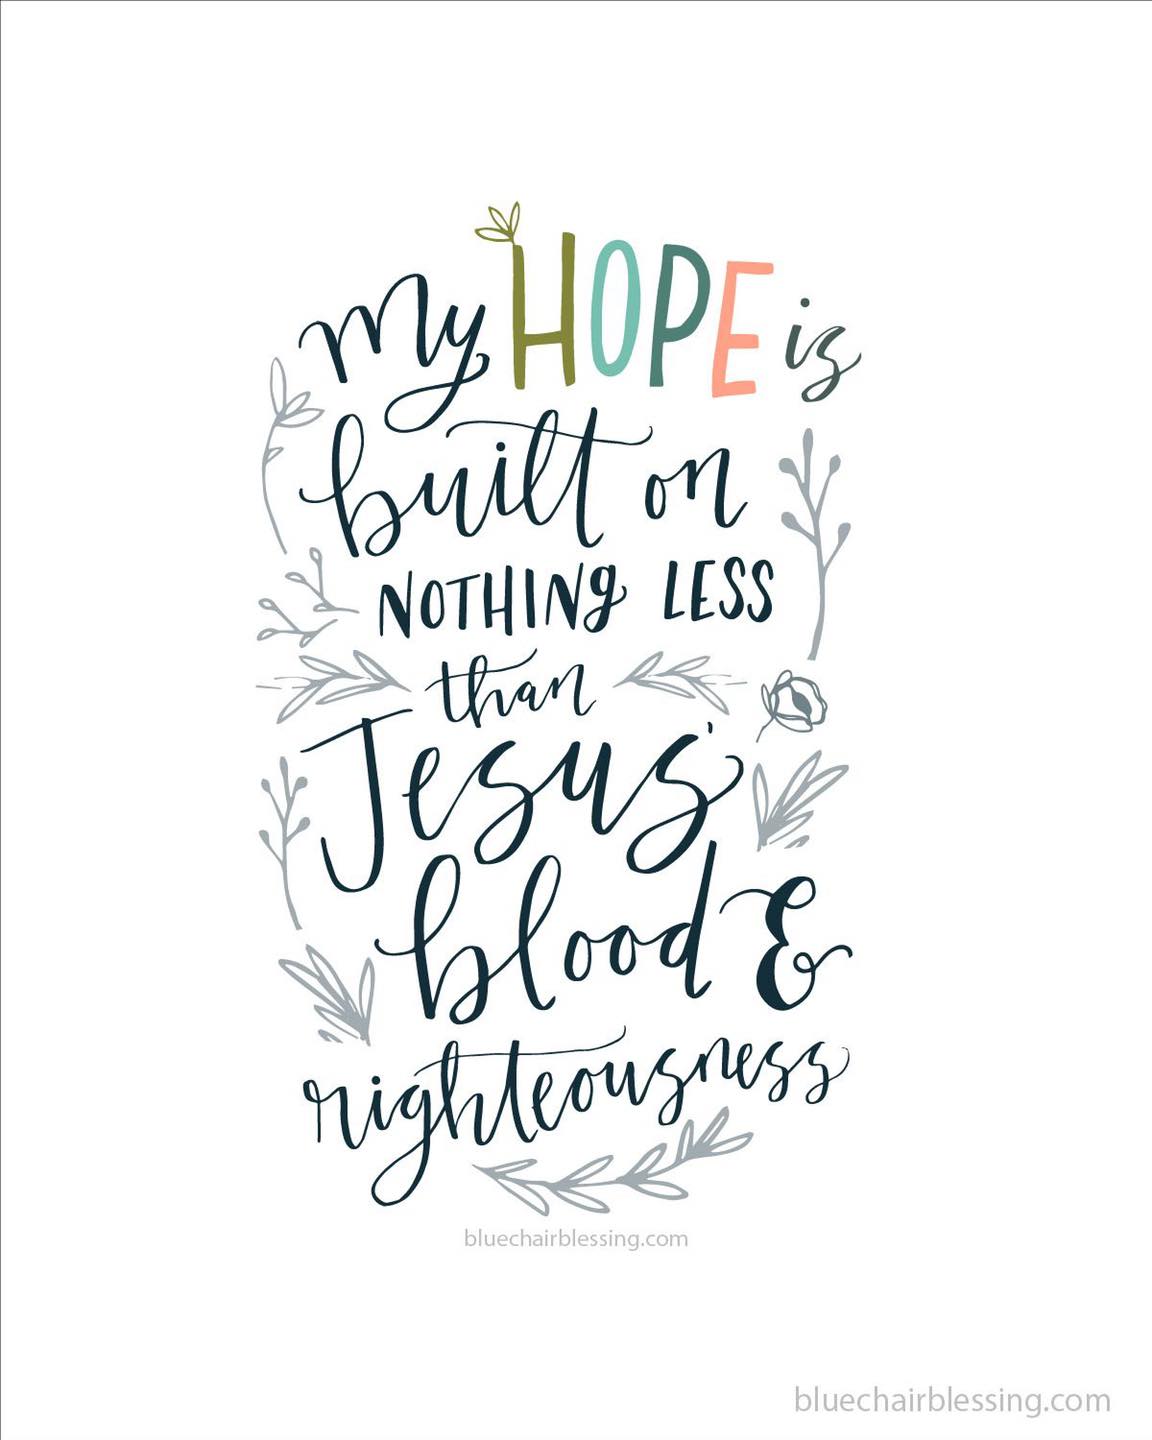 My HOPE is
built on
NOTHINg LESS
than
Jesus'
blood &
righteousness
bluechairblessing.com
bluechairblessing.com